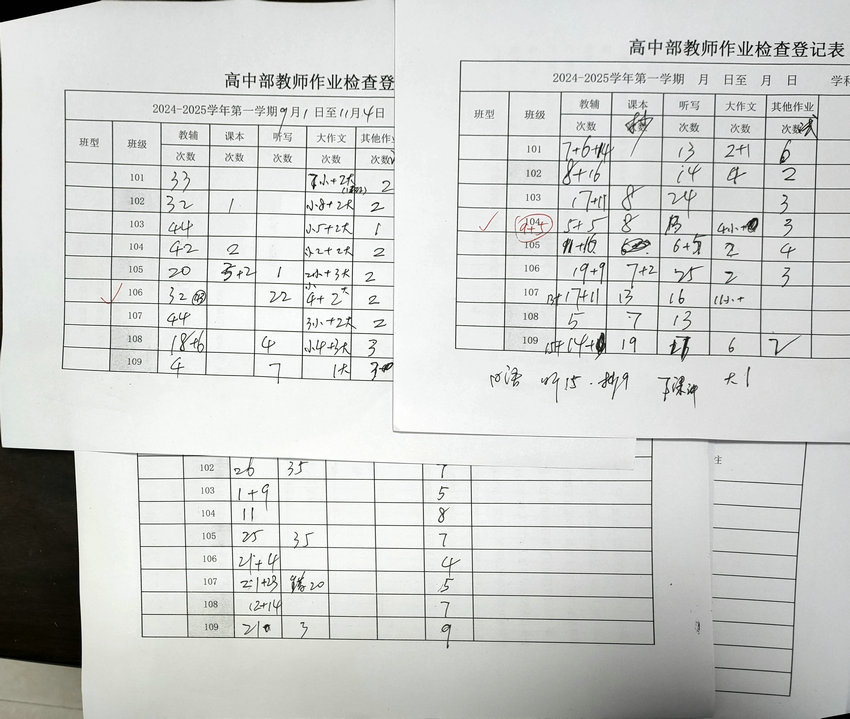 高中部教师作业检查登
2024-2025学年第一学期9月1日至11月4日
班型 班级 教辅 课本 听写 大作文 其他作业
次数 次数 次数 次数 次数
101 33 2
102 32 1 小8+2大 2
103 44 小5+2大 1
104 42 2 小2+2大 2
105 20 3+2 1 2小+3大 2
106 32 22 4+2大 2
107 44 3小+2大 2
108 18+6 4 小4+3大 3
109 4 7 1大
高中部教师作业检查登记表
2024-2025学年第一学期 月 日至 月 日 学科
班型 班级 教辅 课本 听写 大作文 其他作业
次数 次数 次数 次数 次数
101 7+6+14 13 2+1 6
102 8+16 14 4 2
103 17+11 8 24 3
104 9+5 5+5 8 3
105 6+5 2 4
106 19+9 7+2 25 2 3
107 13+17+11 13 16
108 5 7 13
109 15+14+ 19 6 2
大1
102 26 35 7
103 1+9 5
104 11 8
105 25 35 7
106 21+4 4
107 21+23 20 5
108 12+14 7
109 21 3 9
生